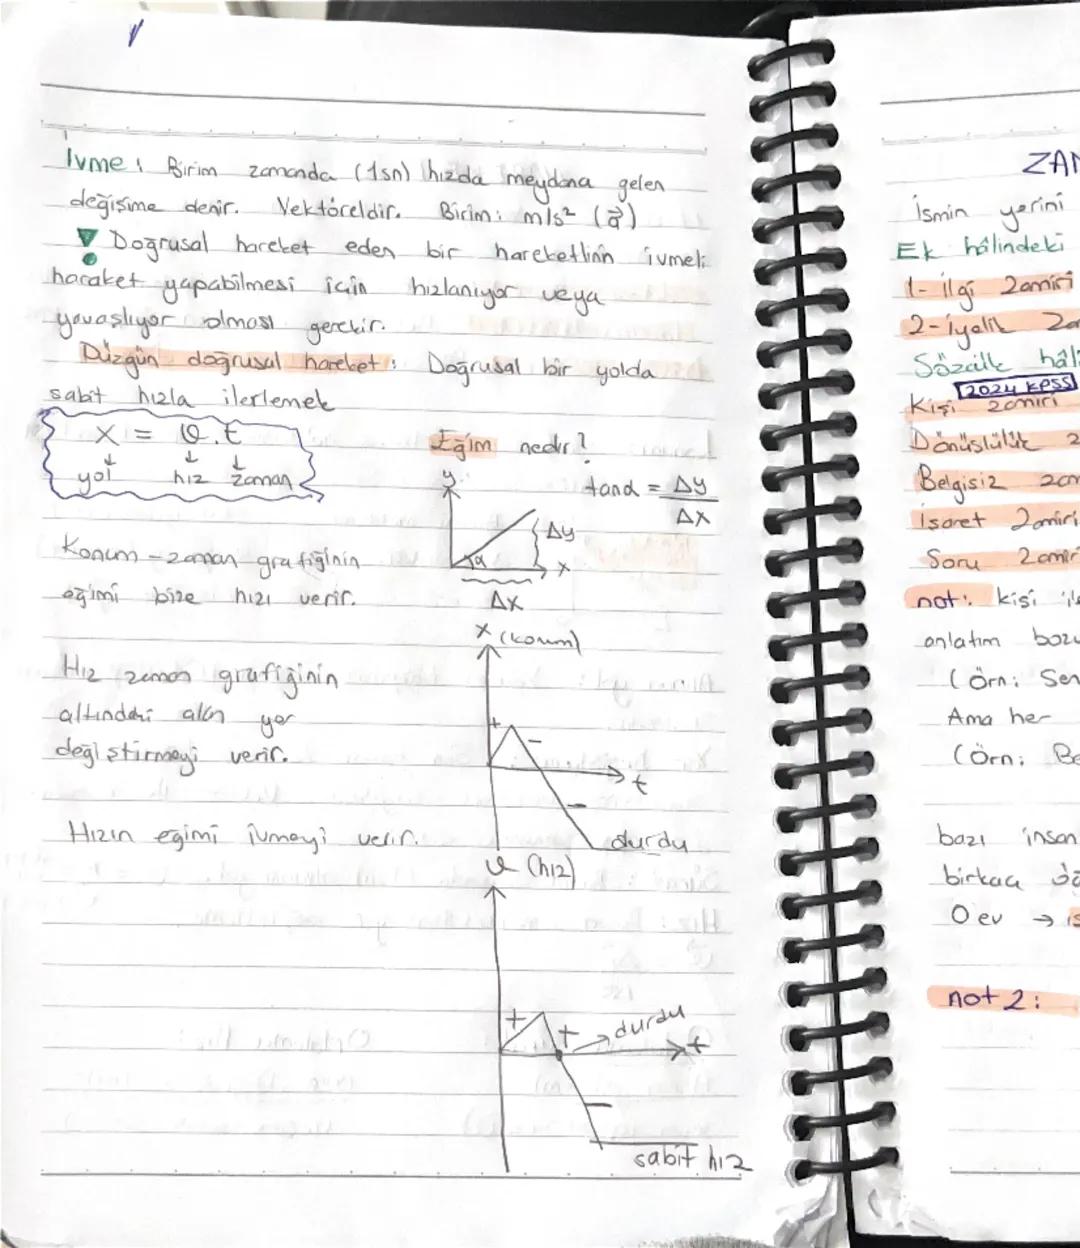 İvme: Birim zamanda (1sn) hızda meydana gelen
değişime denir. Vektöreldir. Birim: m/s² (a⃗)
! Doğrusal hareket eden bir hareketlinin ivmeli
haraket yapabilmesi için hızlanıyor veya
yavaşlıyor olması gerekir.
Düzgün doğrusal hareket: Doğrusal bir yolda
sabit hızla ilerlemek
X = v.t
↓ ↓ ↓
yol hız zaman
Eğim nedir?
y
tanα = Δy
Δx
Δy
α
x
Δx
Konum-zaman grafiğinin
eğimi bize hızı verir.
X (konum)
Hız zaman grafiğinin
altındaki alan yer
değiştirmeyi verir.
+
-
t
-
durdu
Hızın eğimi ivmeyi verir.
v (hız)
+
+ → durdu
t
-
sabit hız
ZAM
İsmin yerini
Ek hâlindeki
1- ilgi zamiri
2- iyelik za
Sözcük hâli
2024 KPSS
Kişi zamiri
Dönüşlülük z
Belgisiz zam
işaret zamiri
Soru zamir
not: kişi
anlatım bozu
(Örn: Sen
Ama her
(Örn: Be
bazı insan
birkaç
O ev → is
not 2: